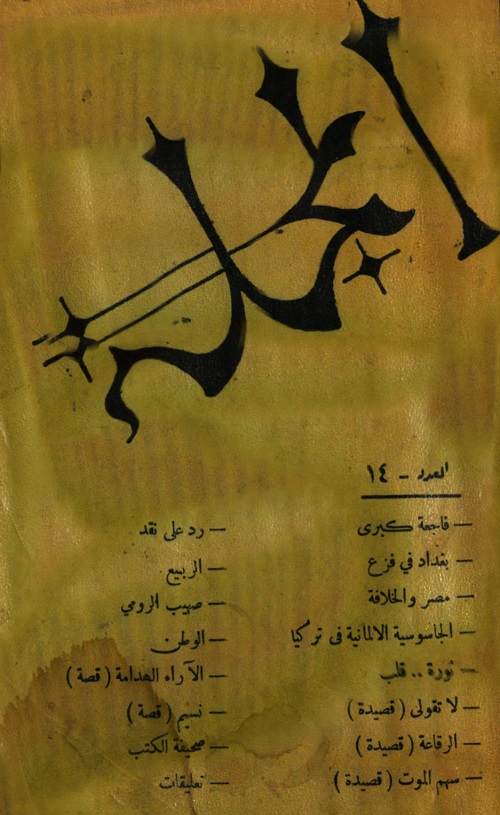 المجلة
العدد - ١٤
— فاجعة كبرى
— بغداد في فزع
— مصر والخلافة
— الجاسوسية الالمانية في تركيا
— ثورة .. قلب
— لا تقولى ( قصيدة )
— الرقاعة ( قصيدة )
— سهم الموت ( قصيدة )
— رد على نقد
— الربيع
— صهيب الرومي
— الوطن
— الآراء الهدامة ( قصة )
— نسيم ( قصة )
— صحيفة الكتب
— تعليقات